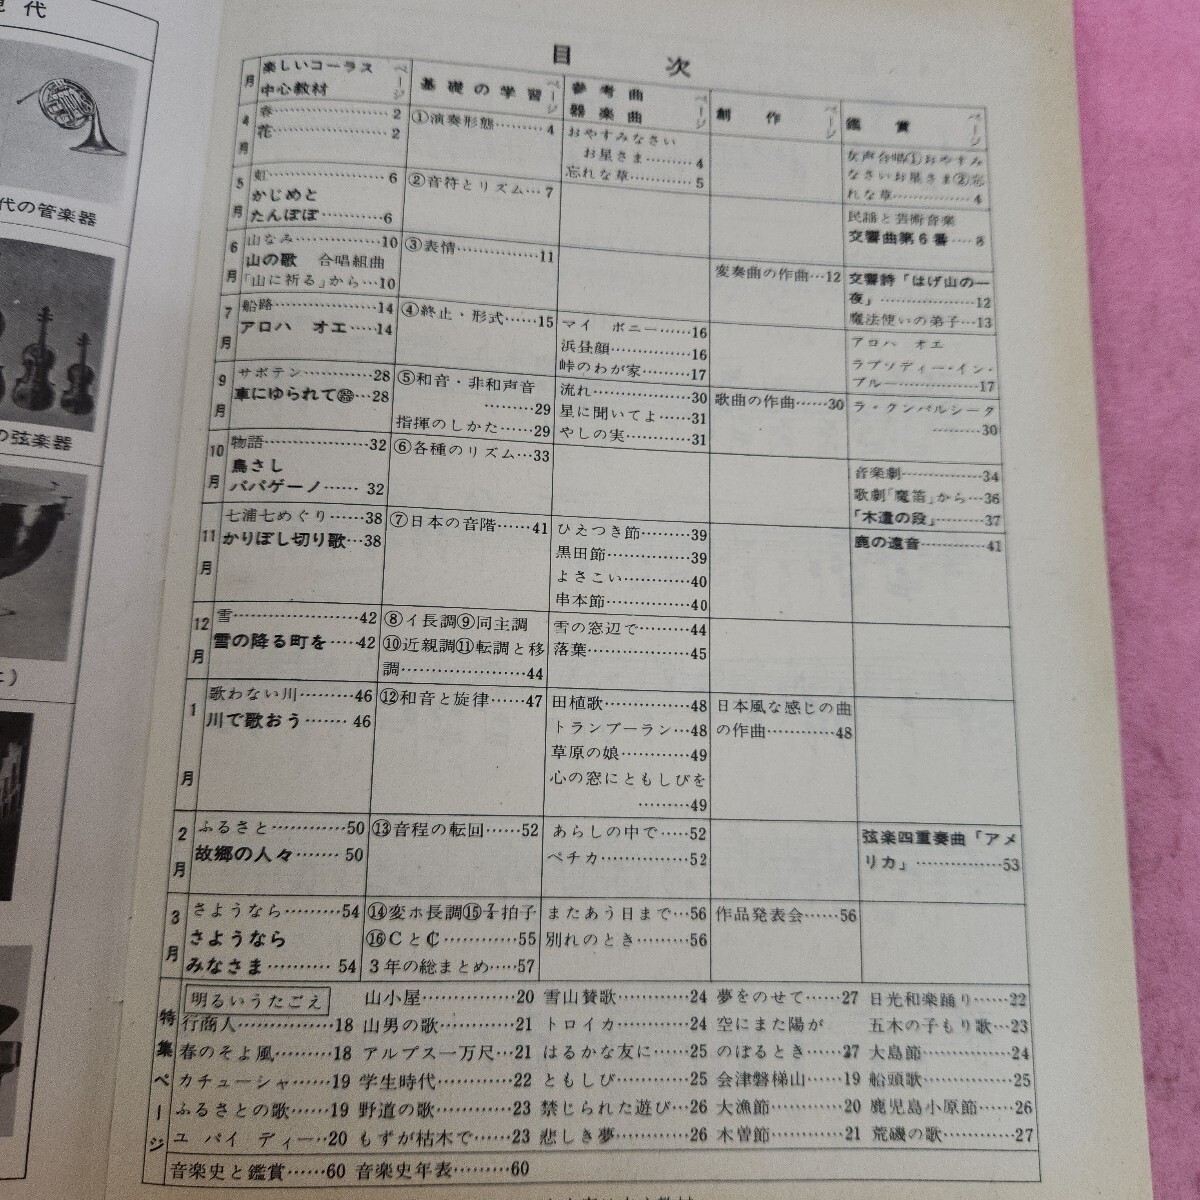 代
代の管楽器
の弦楽器
目次
月
楽しいコーラス
中心教材
ページ
基礎の学習
ページ
参考曲
器楽曲
ページ
創作
ページ
鑑賞
ページ
4月
春……………………2
花……………………2
①演奏形態………4
おやすみなさい
お星さま………4
忘れな草…………5
女声合唱①おやすみ
なさいお星さま②忘
れな草……………4
5月
虹……………………6
かじめと
たんぽぽ…………6
②音符とリズム…7
民謡と芸術音楽
交響曲第6番……8
6月
山なみ……………10
山の歌 合唱組曲
「山に祈る」から…10
③表情……………11
変奏曲の作曲…12
交響詩「はげ山の一
夜」………………12
魔法使いの弟子…13
7月
船路………………14
アロハ オエ……14
④終止・形式……15
マイ ボニー……16
浜昼顔……………16
峠のわが家………17
アロハ オエ
ラプソディー・イン・
ブルー……………17
9月
サボテン…………28
車にゆられて㊩…28
⑤和音・非和声音
………29
指揮のしかた……29
流れ………………30
星に聞いてよ……31
やしの実…………31
歌曲の作曲……30
ラ・クンパルシータ
………30
10月
物語………………32
鳥さし
パパゲーノ……32
⑥各種のリズム…33
音楽劇……………34
歌劇「魔笛」から…36
「木遣の段」………37
11月
七浦七めぐり……38
かりぼし切り歌…38
⑦日本の音階……41
ひえつき節………39
黒田節……………39
よさこい…………40
串本節……………40
鹿の遠音…………41
12月
雪…………………42
雪の降る町を……42
⑧イ長調⑨同主調
⑩近親調⑪転調と移
調…………………44
雪の窓辺で………44
落葉………………45
1月
歌わない川………46
川で歌おう………46
⑫和音と旋律……47
田植歌……………48
トランブーラン…48
草原の娘…………49
心の窓にともしびを
………49
日本風な感じの曲
の作曲…………48
2月
ふるさと…………50
故郷の人々………50
⑬音程の転回……52
あらしの中で……52
ペチカ……………52
弦楽四重奏曲「アメ
リカ」……………53
3月
さようなら………54
さようなら
みなさま…………54
⑭変ホ長調⑮7/4拍子
⑯Cと₵…………55
3年の総まとめ……57
またあう日まで…56
別れのとき………56
作品発表会……56
特集ページ
明るいうたごえ
行商人……………18
春のそよ風………18
カチューシャ……19
ふるさとの歌……19
ユ パイ ディー…20
山小屋……………20
山男の歌…………21
アルプス一万尺…21
学生時代…………22
野道の歌…………23
もずが枯木で……23
雪山賛歌…………24
トロイカ…………24
はるかな友に……25
ともしび…………25
禁じられた遊び…26
悲しき夢…………26
夢をのせて……27
空にまた陽が
のぼるとき……27
会津磐梯山……19
大漁節…………20
木曽節…………21
日光和楽踊り……22
五木の子もり歌…23
大島節……………24
船頭歌……………25
鹿児島小原節……26
荒磯の歌…………27
音楽史と鑑賞……60
音楽史年表………60